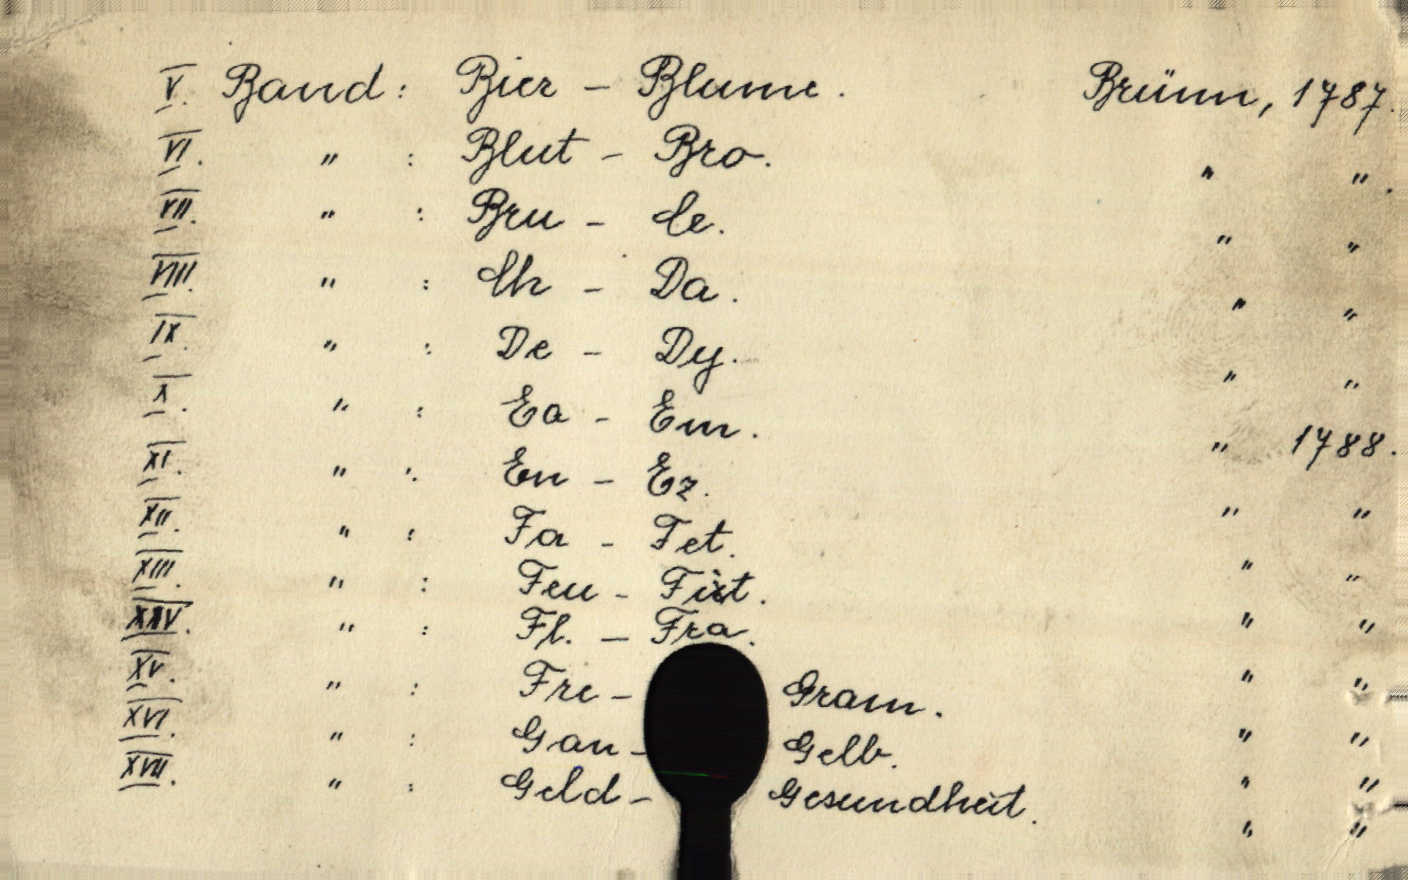 V. Band : Bier – Blume. Brünn, 1787.
VI. " : Blut – Bro. " ".
VII. " : Bru – Ce. " "
VIII. " : Ch – Da. " "
IX. " : De – Dy. " "
X. " : Ea – Em. " 1788.
XI. " : En – Ez. " "
XII. " : Fa – Fet. " "
XIII. " : Feu – Fixt. " "
XIV. " : Fl. – Fra. " "
XV. " : Fre – Gram. " "
XVI. " : Gan – Gelb. " "
XVII. " : Geld – Gesundheit. " "